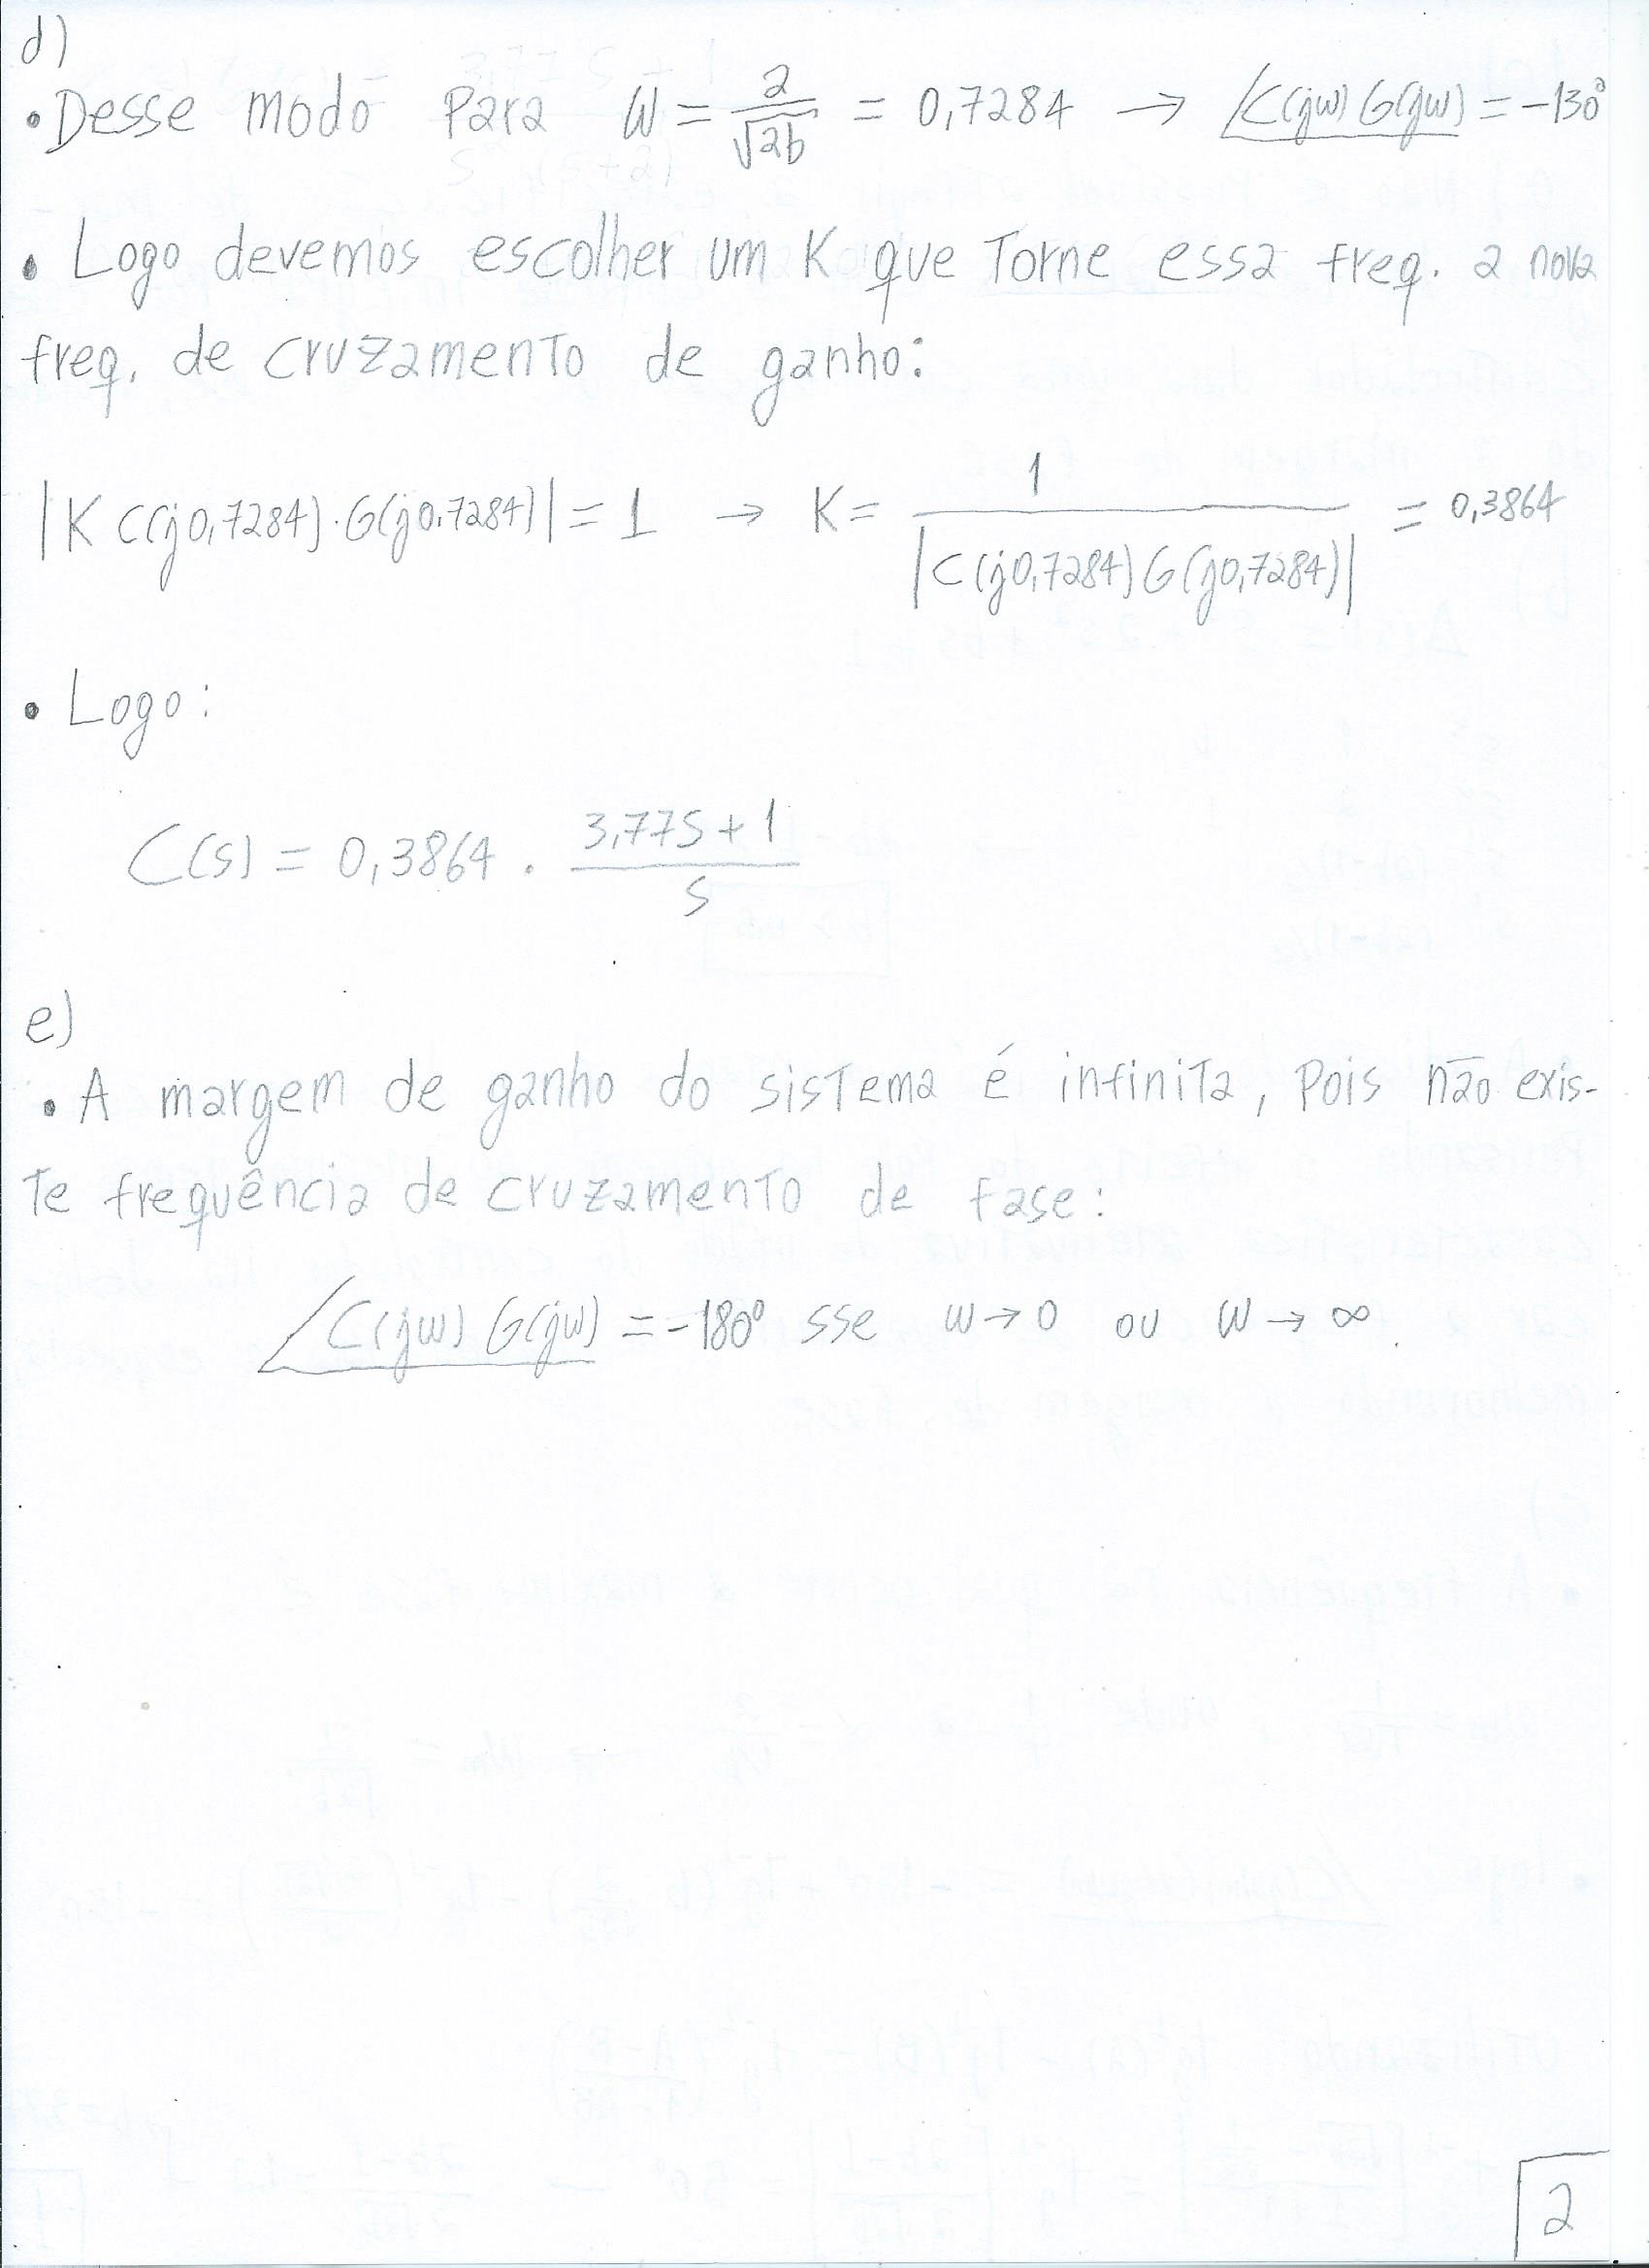 d)
• Desse modo para W = 2/√2b = 0,7284 → ∠C(jw) G(jw) = -130°
• Logo devemos escolher um K que torne essa freq. a nova
freq. de cruzamento de ganho:
|K C(j0,7284)·G(j0,7284)| = 1 → K = 1/|C(j0,7284) G(j0,7284)| = 0,3864
• Logo:
C(s) = 0,3864 . 3,77S+1/S
e)
• A margem de ganho do sistema é infinita, pois não exis-
te frequência de cruzamento de fase:
∠C(jw) G(jw) = -180° sse w → 0 ou w → ∞.
2